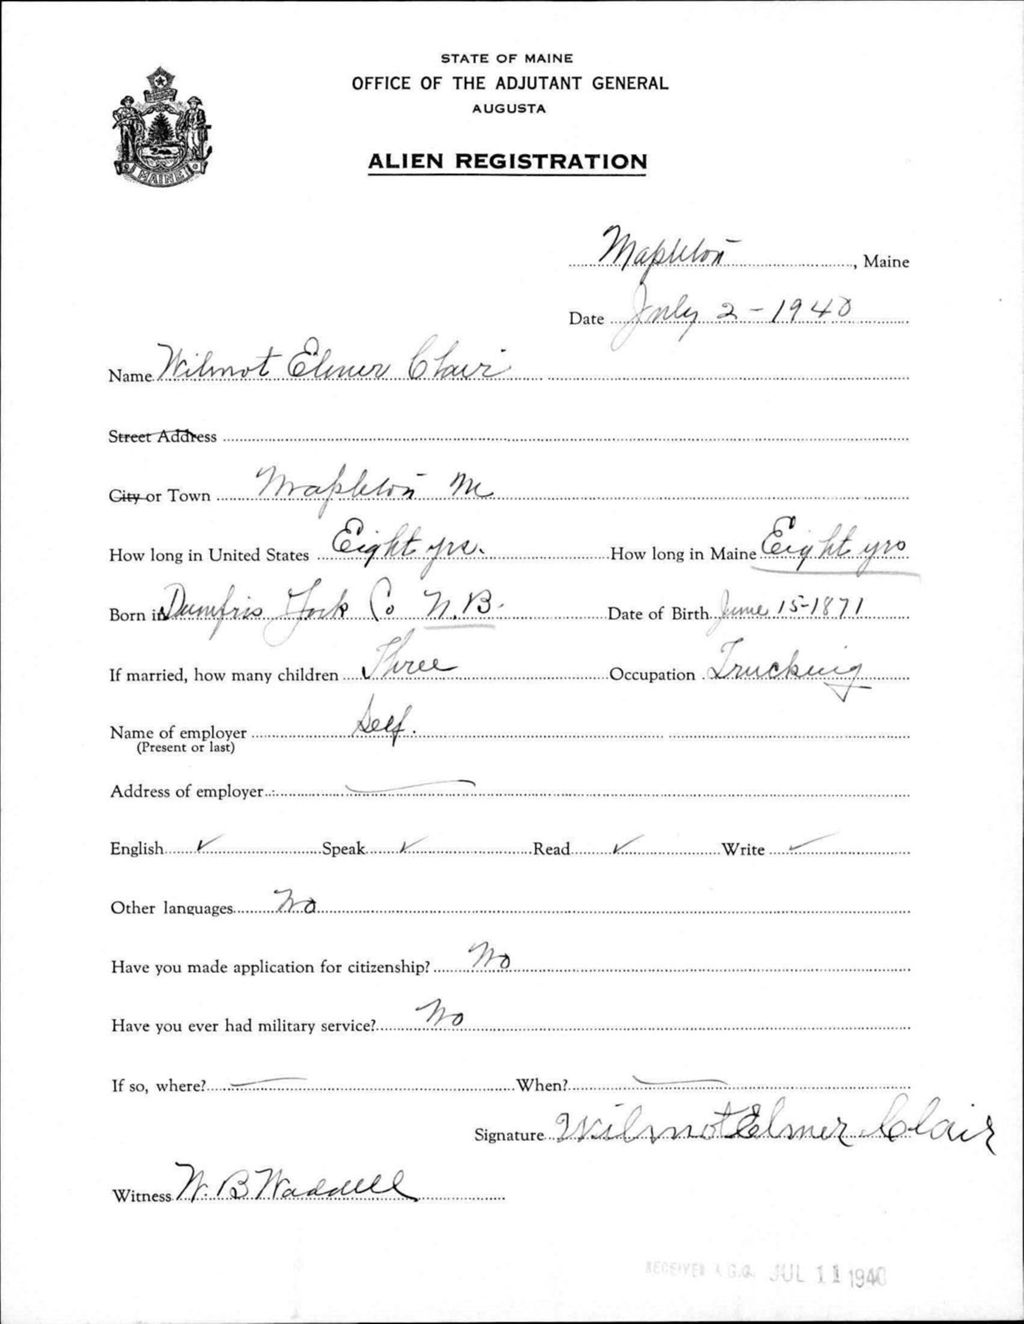 STATE OF MAINE
OFFICE OF THE ADJUTANT GENERAL
AUGUSTA
ALIEN REGISTRATION
MAINE
Mapleton, Maine
Date July 2 - 1940
Name Wilmot Elmer Clair
Street Address
City or Town Mapleton Me
How long in United States Eight yrs. How long in Maine Eight yrs
Born in Dumfris York Co N.B. Date of Birth June 15-1871
If married, how many children Three Occupation Trucking
Name of employer Self.
(Present or last)
Address of employer
English ✓ Speak ✓ Read ✓ Write ✓
Other languages No
Have you made application for citizenship? No
Have you ever had military service? No
If so, where? — When? —
Signature Wilmot Elmer Clair
Witness W. B Waddell
RECEIVED A.G.O. JUL 11 1940